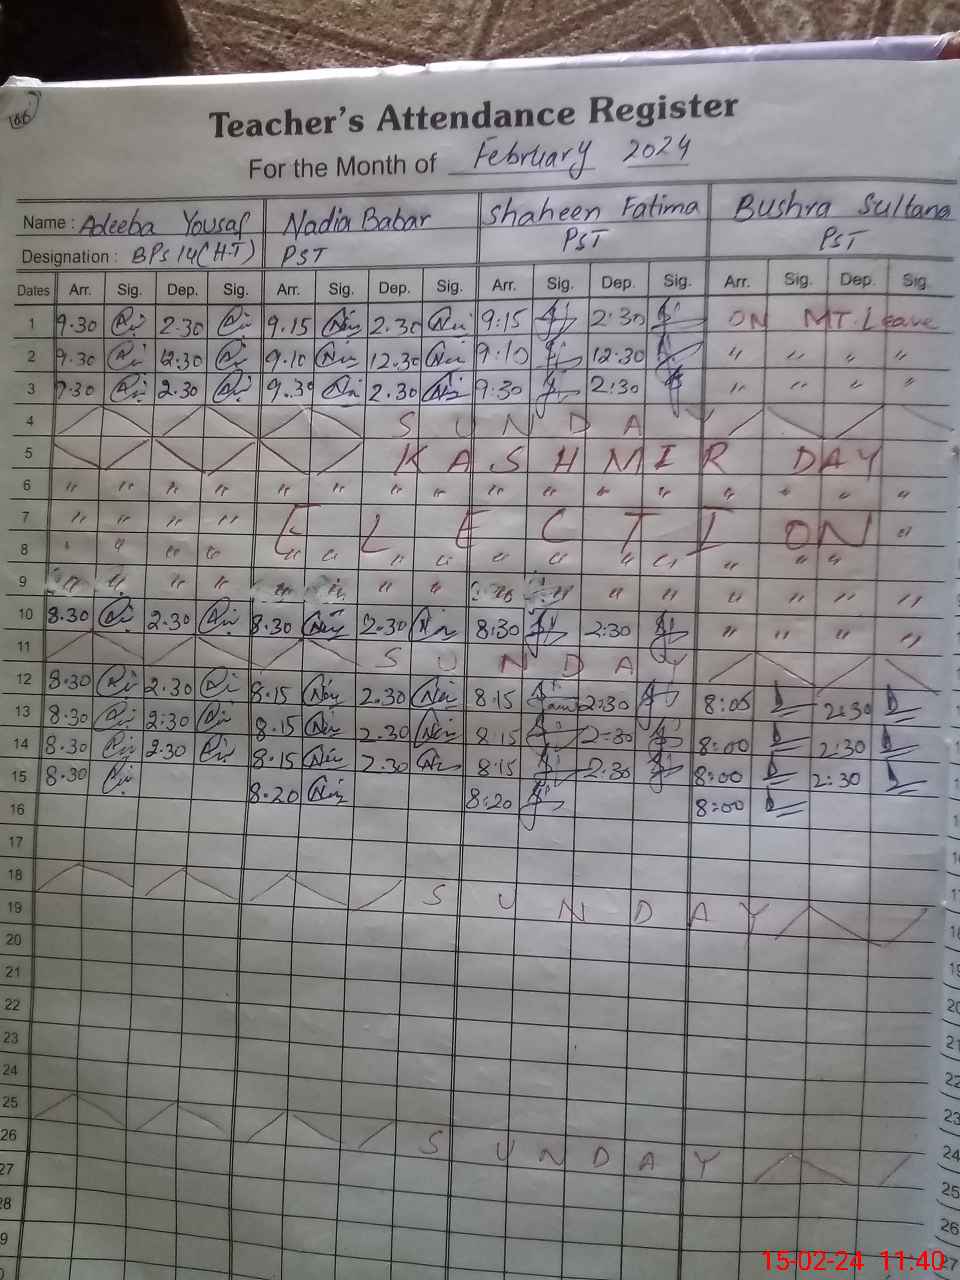 186
Teacher's Attendance Register
For the Month of February 2024
Name : Adeeba Yousaf Nadia Babar Shaheen Fatima Bushra Sultana
Designation : BPS 14 (H.T) PST PST PST
Dates Arr. Sig. Dep. Sig. Arr. Sig. Dep. Sig. Arr. Sig. Dep. Sig. Arr. Sig. Dep. Sig.
1 9.30 2.30 9.15 2.30 9:15 2:30 ON MT. Leave
2 9.30 12.30 9.10 12.30 9:10 12.30 " " " "
3 9.30 2.30 9.30 2.30 9:30 2:30 " " " "
4 SUNDAY
5 KASHMIR DAY
6 " " " " " " " " " " " " " " " "
7 " " " " ELECTION "
8 " " " " " " " " " " " " " " "
9 " " " " " " " " " " " " " " " "
10 8.30 2.30 8.30 2.30 8:30 2:30 " " " "
11 SUNDAY
12 8.30 2.30 8.15 2.30 8.15 2:30 8:05 2:30
13 8.30 2:30 8.15 2.30 8:15 2:30 8:00 2:30
14 8.30 2.30 8.15 2.30 8:15 2:30 8:00 2:30
15 8.30 8.20 8:20 8:00
16
17
18 SUNDAY
19
20
21
22
23
24
25 SUNDAY
26
27
28
15-02-24 11:40